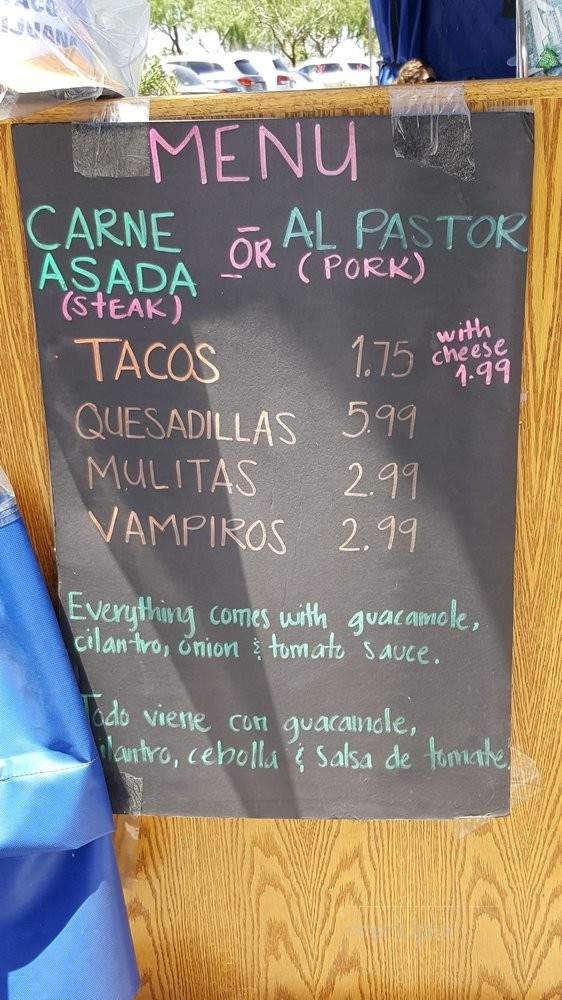 TACO
TIJUANA
MENU
CARNE ASADA
(STEAK)
OR
AL PASTOR
(PORK)
TACOS 1.75 with cheese 1.99
QUESADILLAS 5.99
MULITAS 2.99
VAMPIROS 2.99
Everything comes with guacamole,
cilantro, onion & tomato sauce.
Todo viene con guacamole,
cilantro, cebolla & salsa de tomate.